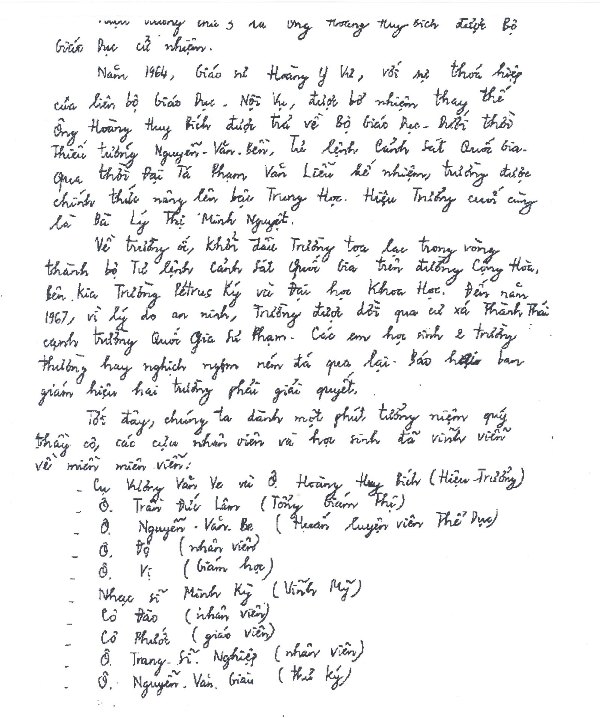 chức 3 là Ông Hoàng Huy Bích được Bộ
Giáo Dục cử nhiệm.
Năm 1964, Giáo sư Hoàng Y Vũ, với sự thoả hiệp
của liên bộ Giáo Dục - Nội Vụ, được bổ nhiệm thay thế
Ông Hoàng Huy Bích được trả về Bộ Giáo Dục - Dưới thời
Thiếu tướng Nguyễn-Văn-Bền, Tư lệnh Cảnh Sát Quốc Gia.
Qua thời Đại Tá Phạm Văn Liễu kế nhiệm, trường được
chính thức nâng lên bậc Trung Học. Hiệu Trưởng cuối cùng
là Bà Lý Thị Minh Nguyệt.
Về trường ốc, khởi đầu Trường tọa lạc trong vòng
thành bộ Tư lệnh Cảnh Sát Quốc Gia trên đường Cộng Hòa,
Bên kia Trường Pétrus Ký và Đại học Khoa Học. Đến năm
1967, vì lý do an ninh, Trường được dời qua cư xá Thành Thái
cạnh trường Quốc Gia Sư Phạm. Các em học sinh 2 trường
thường hay nghịch ngợm ném đá qua lại. Báo hại ban
giám hiệu hai trường phải giải quyết.
Tới đây, chúng ta dành một phút tưởng niệm quý
thầy cô, các cựu nhân viên và học sinh đã vĩnh viễn
về miền miên viễn:
- Cụ Vương Văn Ve và Ô. Hoàng Huy Bích (Hiệu-Trưởng)
- Ô. Trần Đức Lâm (Tổng Giám Thị)
- Ô. Nguyễn-Văn-Be (Huấn luyện viên Thể Dục)
- Ô. Độ (nhân viên)
- Ô. Vị (Giám học)
- Nhạc sĩ Minh Kỳ (Vĩnh Mỹ)
- Cô Đào (nhân viên)
- Cô Phước (giáo viên)
- Ô. Trang-Sĩ-Nghiệp (nhân viên)
- Ô. Nguyễn-Văn-Giàu (thư ký)